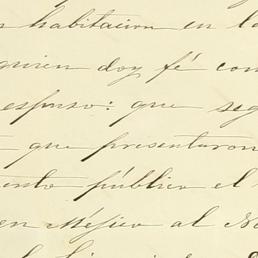 habitacion en la
quien doy fé con
esposo: que seg
que presentaron
ento público el
en Méjico al No